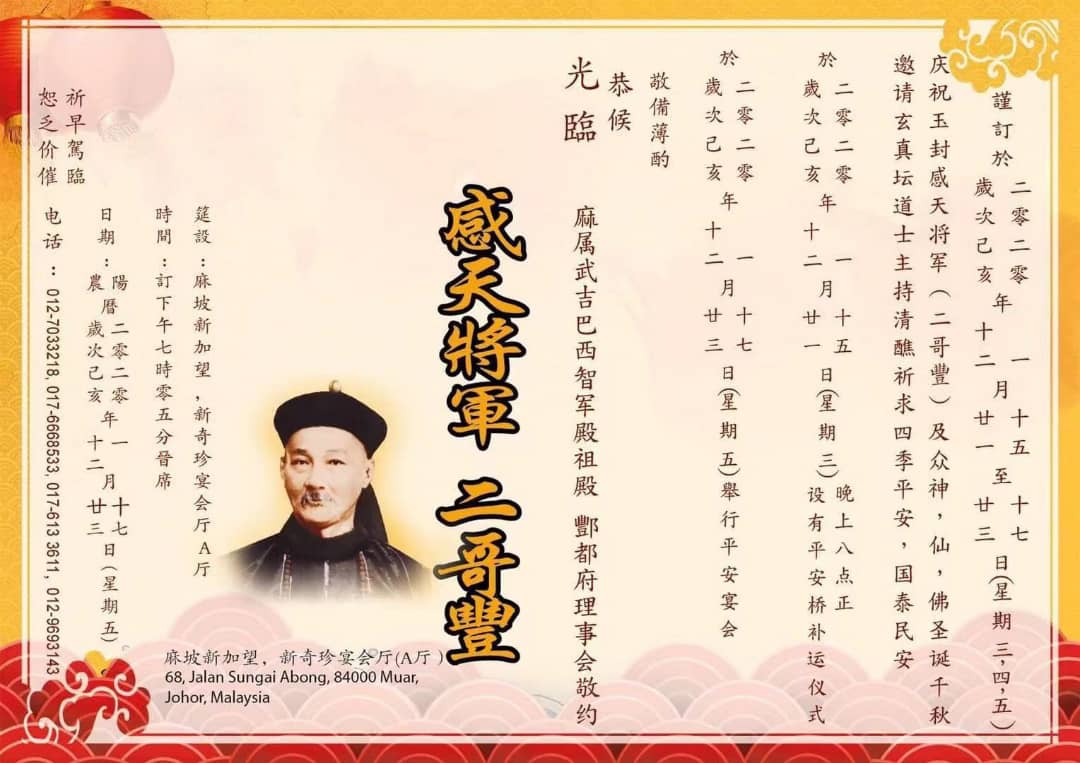 謹訂於 二零二零 歲次己亥 年 一 十二 月 十五 廿一 至 十七 廿三 日(星期三,四,五)
庆祝玉封感天将军(二哥豐)及众神,仙,佛圣诞千秋
邀请玄真坛道士主持清醮祈求四季平安,国泰民安
於 二零二零 歲次己亥 年 一 十二 月 十五 廿一 日(星期三) 晚上八点正 设有平安桥补运仪式
於 二零二零 歲次己亥 年 一 十二 月 十七 廿三 日(星期五)舉行平安宴会
敬備薄酌
恭候
光臨
麻属武吉巴西智军殿祖殿 酆都府理事会敬约
感天將軍 二哥豐
筵設:麻坡新加望,新奇珍宴会厅A厅
時間:訂下午七時零五分晉席
日期: 陽曆二零二零 農曆歲次己亥 年 一 十二 月 十七 廿三 日(星期五)
祈早駕臨
恕乏价催
电话:012-7033218, 017-6668533, 017-613 3611, 012-9693143
麻坡新加望,新奇珍宴会厅(A厅)
68, Jalan Sungai Abong, 84000 Muar,
Johor, Malaysia